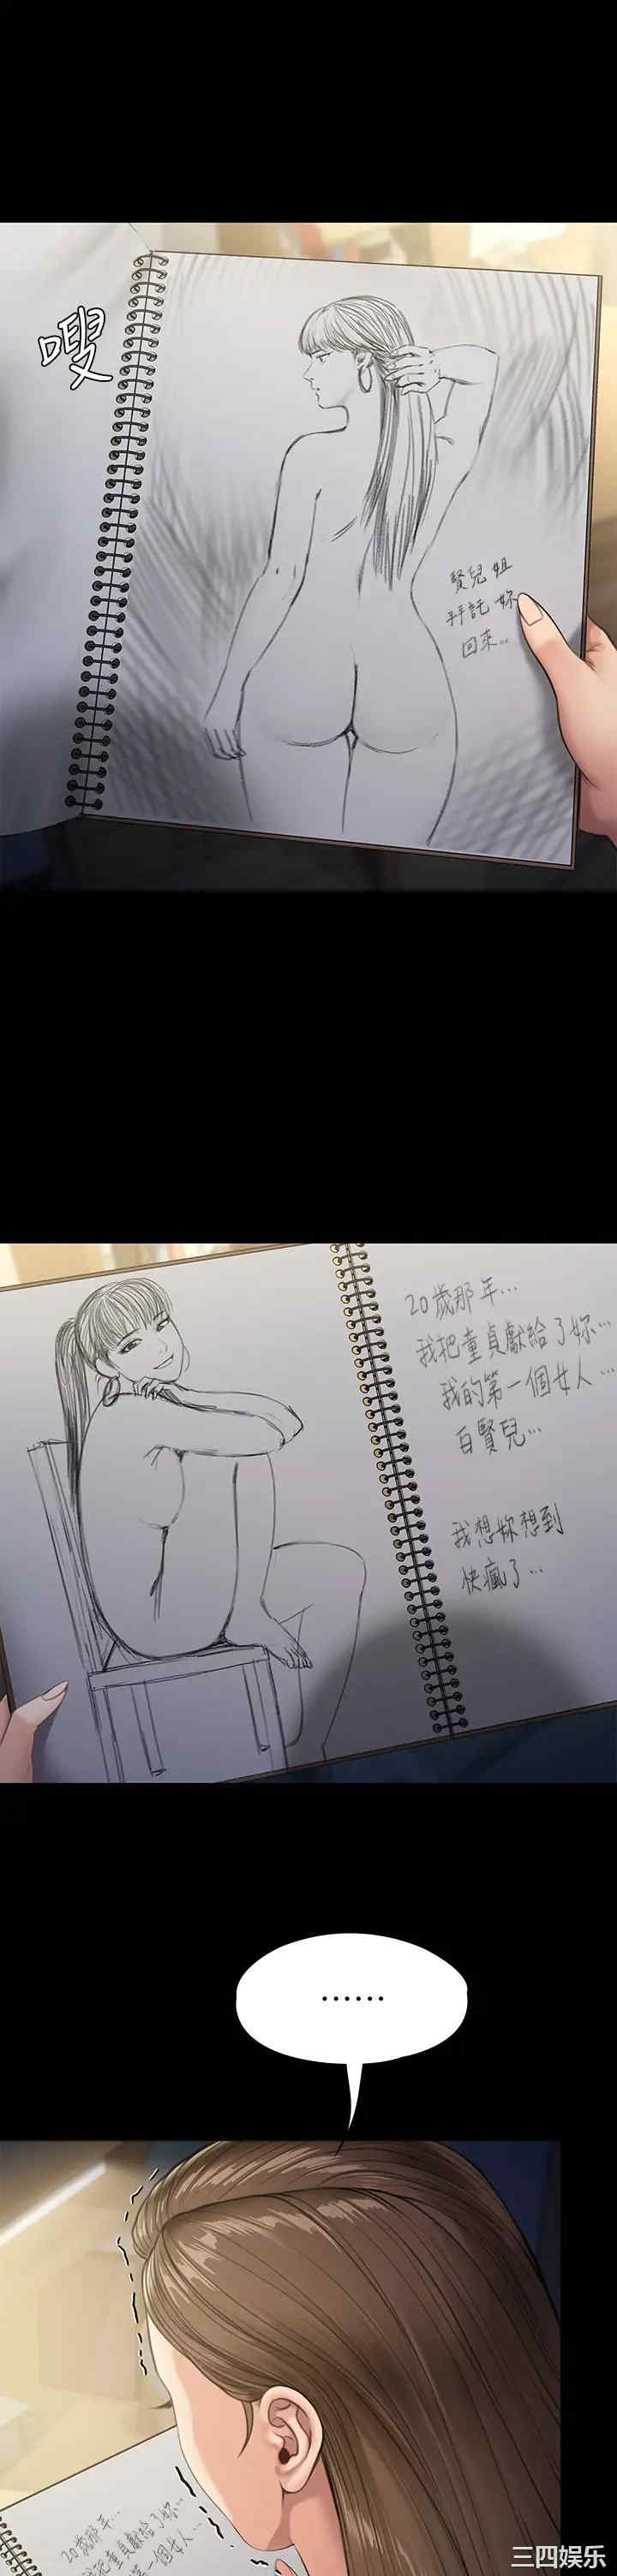 嗖
賢兒姐
拜託妳
回來..
20歲那年...
我把童貞獻給了妳...
我的第一個女人...
白賢兒...
我想妳想到
快瘋了...
......
20歲那年...
我把童貞獻給了妳...
我的第一個女人...
三四娱乐